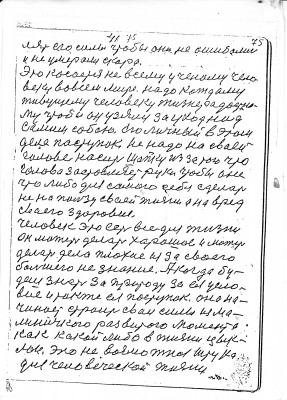 75
ляр его силы чтобы они не ошибались
и не умерали скоро.
Это косаетя не всему ученому чело
веку вовсем мире. надо каждому
живущему человеку
му чтобы он узнал за уход над
самим собою его личный в этом
деле поступок. не надо на своей
голове носит шапку из за того что
голова заставляет руки чтобы они
что либо для самого себя сделал
не на ползу своей жизни а на вред
своего здоровия.
Человек это сер вае для жизни
он может делат харошое и может
делат дела плохие из за своего
болшего не знание. А когда бу-
дем знат за природу за ея усло-
вие и также ея поступок. она на-
чинает строит свои силы из ма-
развитого момента
как какой либо в жизни цвик-
лок. Это не возможная штука
для человеческой жизни